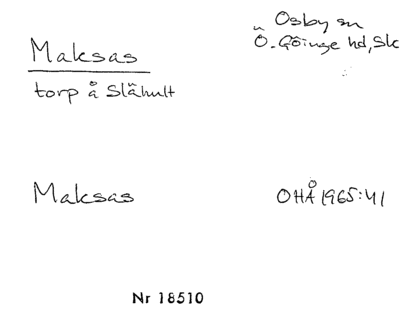 Osby sn
Maksas
Ö. Göinge hd, Sk
torp å Slähult
Maksas
OHÅ 1965:41
Nr 18510